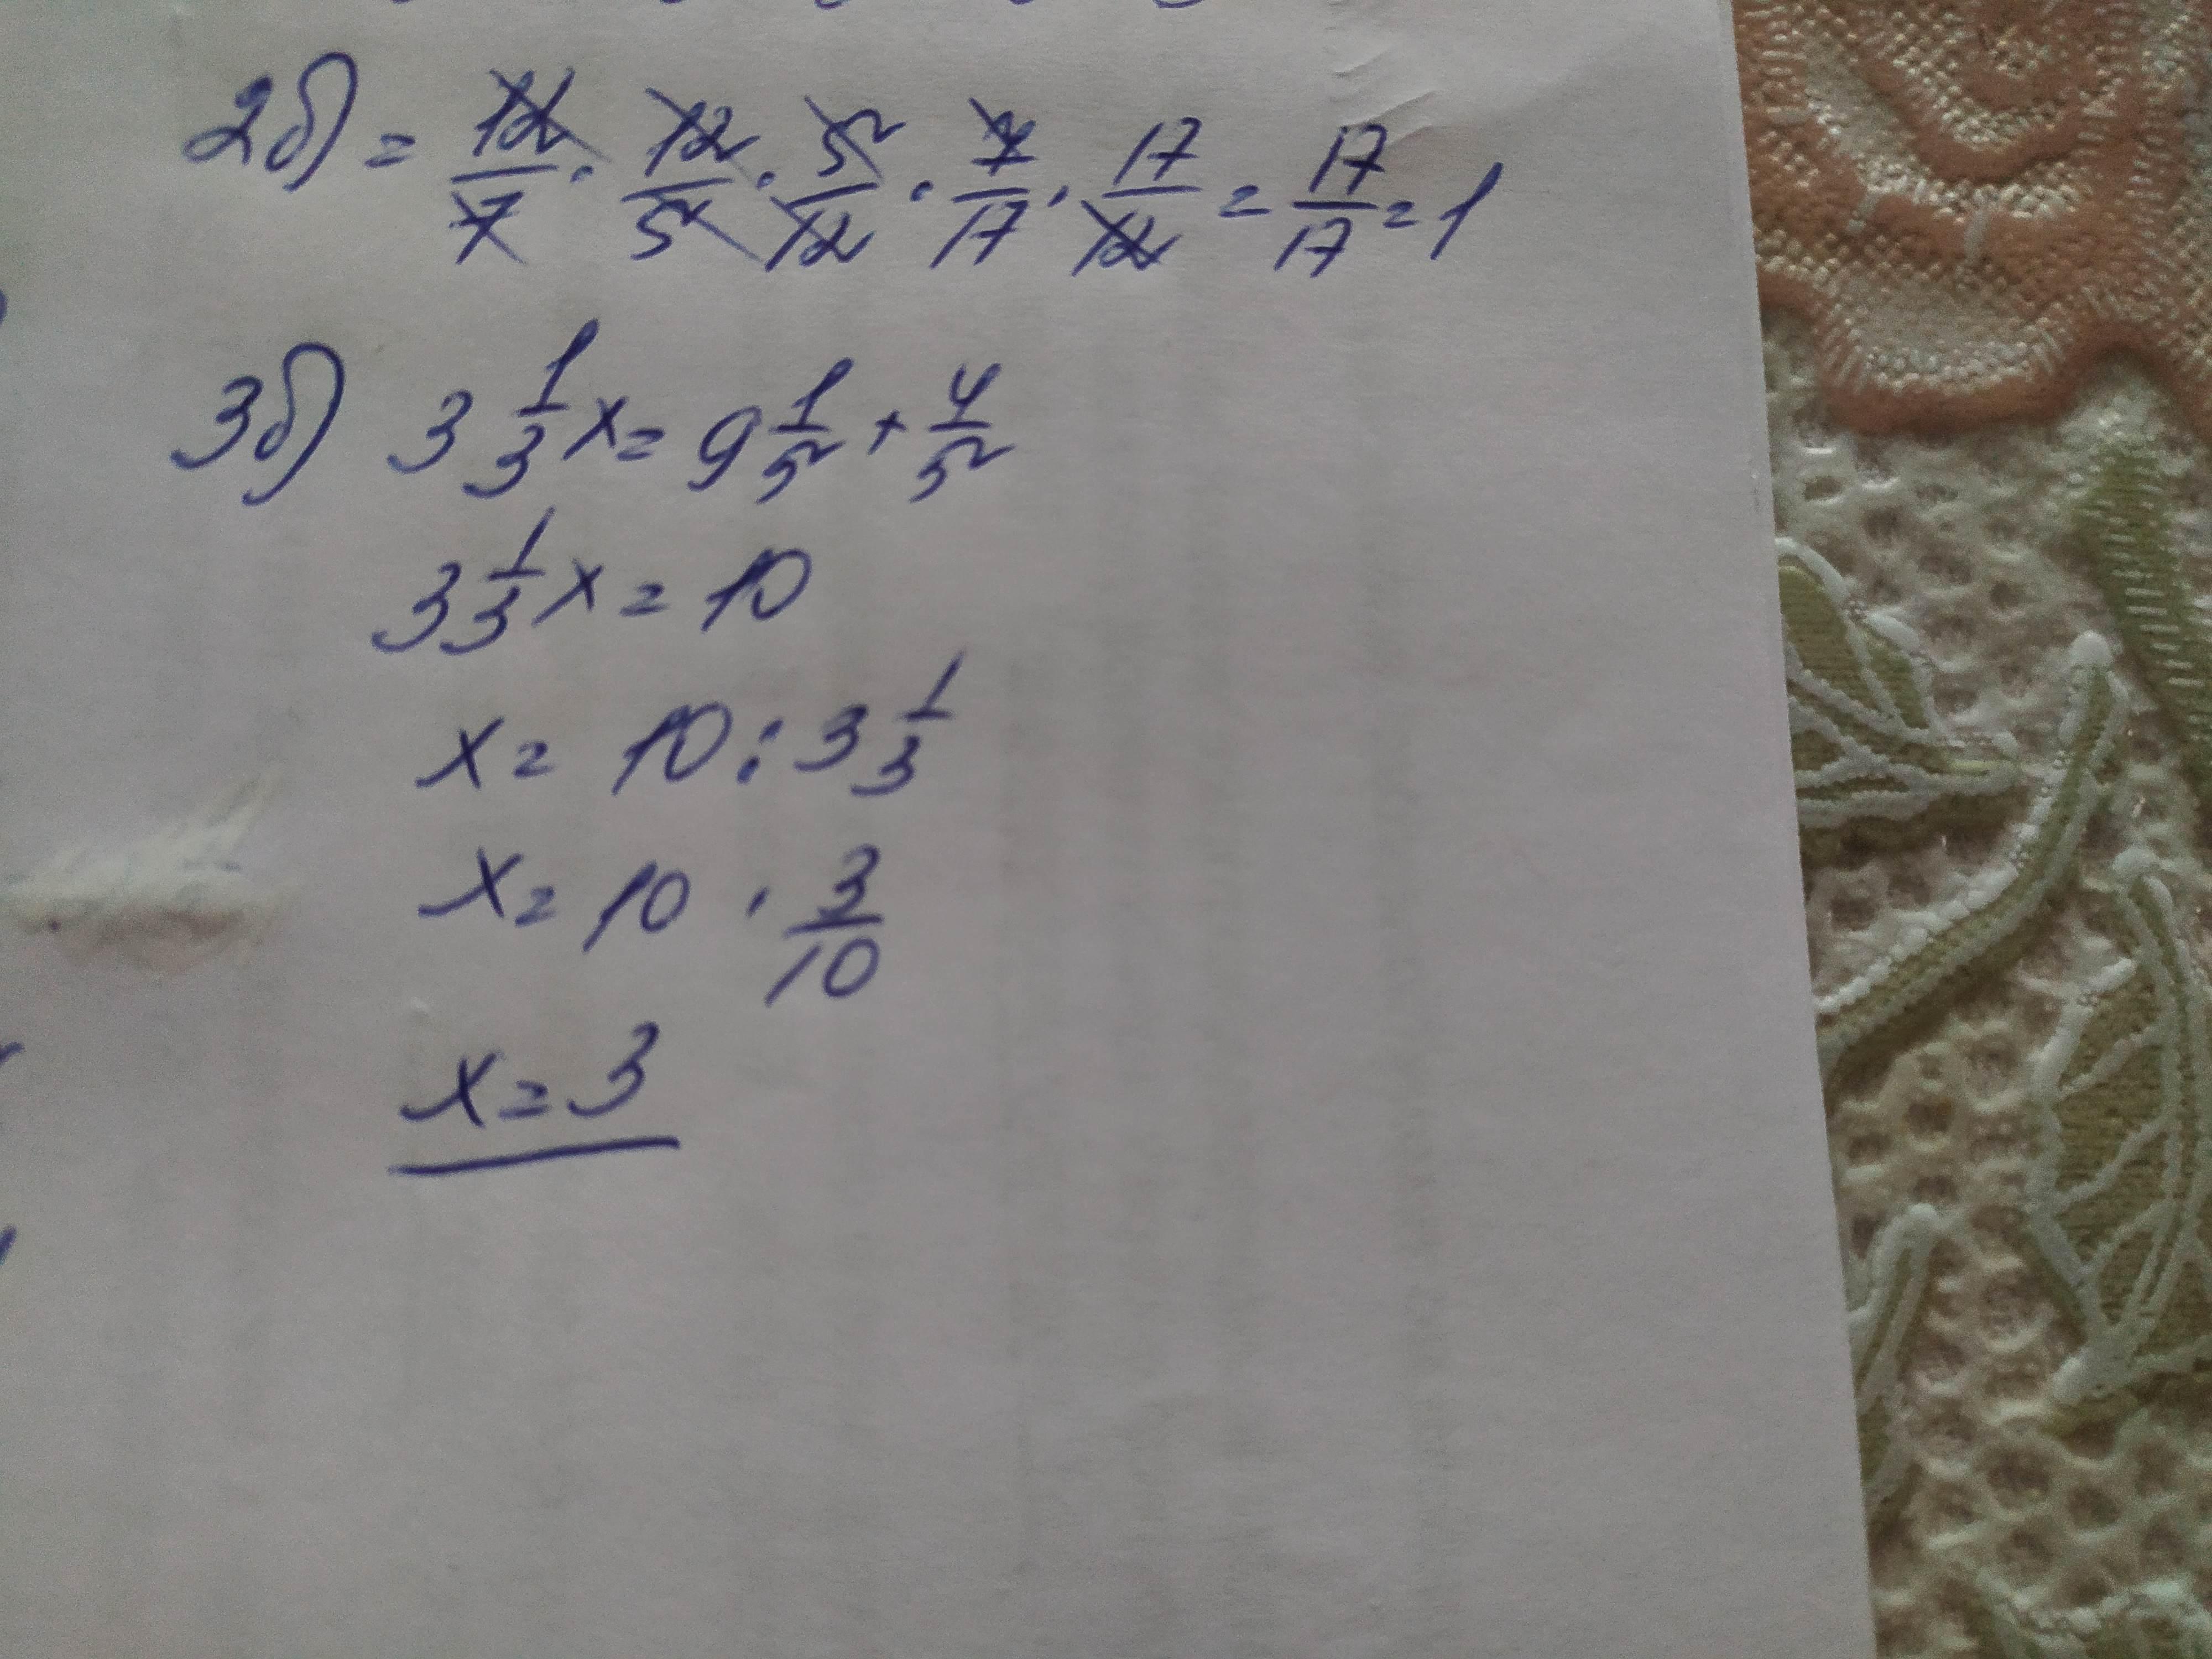 2б) = 12/7 · 12/5 · 5/12 · 7/17 · 17/12 = 17/17 = 1
3б) 3 1/3 x = 9 1/5 + 4/5
3 1/3 x = 10
x = 10 : 3 1/3
x = 10 · 3/10
x = 3